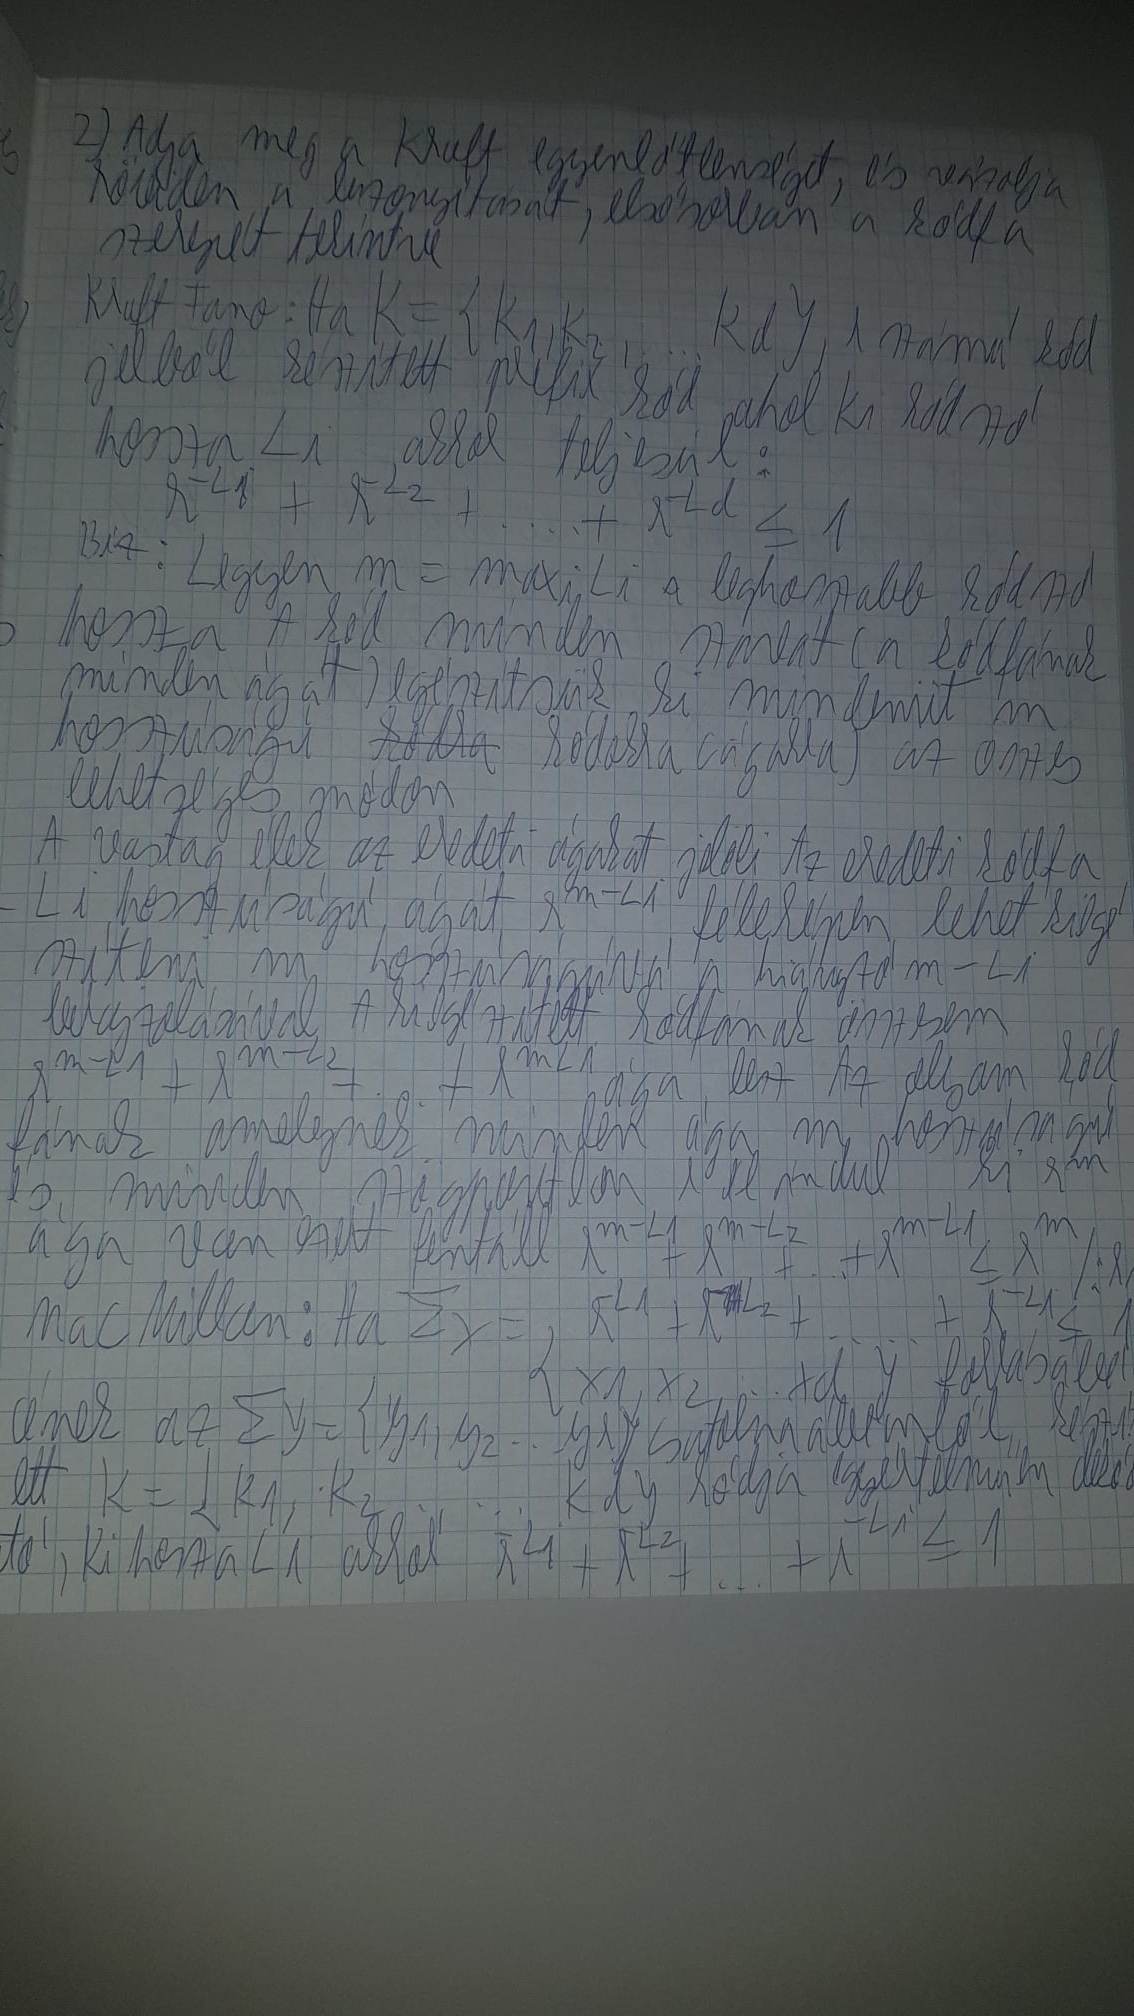 2) Adja meg a Kraft egyenlőtlenséget, és vázolja
röviden a bizonyítását, elsősorban a kódfa
szerepét tekintve
Kraft tano: Ha K = {K1, K2, ... Kd}, r számú kód
jelből készített prefix kód, ahol Ki kódszó
hossza Li, akkor teljesül:
r^-L1 + r^-L2 + ... + r^-Ld ≤ 1
Biz: Legyen m = maxi Li a leghosszabb kódszó
hossza A kód minden szavát (a kódfának
minden ágát) egészítsük ki mindenütt m
hosszúságú kódokra (ágakra) az összes
lehetséges módon
A vastag élek az eredeti ágakat jelöli Az eredeti kódfa
Li hosszúságú ágát r^m-Li féleképpen lehet kiegé
szíteni m hosszúságúvá a hiányzó m-Li
A kiegészített kódfának összesen
r^m-L1 + r^m-L2 + ... + r^m-L1 ága lesz Az olyan kód
fának amelynek minden ága m hosszúságú
és minden pontból r él indul ki r^m
ága van ezért fennáll r^m-L1 + r^m-L2 + ... + r^m-L1 ≤ r^m /:r
Mac Millan: Ha Σx =, r^-L1 + r^-L2 + ... + r^-L1 ≤ 1
{x1, x2, ... xd}
ének az Σy = {y1, y2 ... yr}
ett K = {K1, K2, ... Kd} kódja egyértelműen dekó
tó, Ki hossza Li akkor r^L1 + r^L2 + ... + r^-L1 ≤ 1